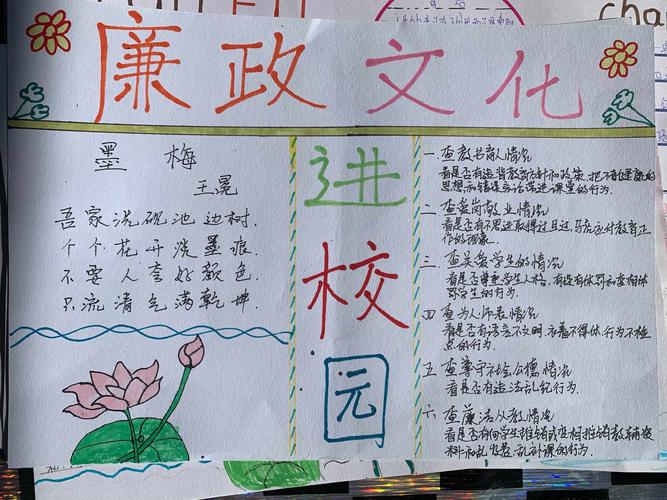 廉政文化
进
校
园
墨 梅
王冕
吾家洗砚池边树.
个个花开淡墨痕.
不要人夸好颜色
只流清气满乾坤.
一.查教书育人情况
看是否有违背教育方针和政策.把不
思想和错误言论带进课堂的行为.
二.查爱岗敬业情况
看是否有不思进取得过且过,马虎应付教育工
作的现象.
三.查关爱学生的情况
看是否尊重学生人格,有没有体罚和变相体
罚学生的行为.
四 查为人师表情况
看是否有语言不文明.衣着不得体,行为不检
点的行为.
五 查遵守社会公德情况
看是否有违法乱纪行为.
六 查廉洁从教情况
看是否有向学生推销或变相推销教辅资
料和乱收费,乱补课的行为.
cha